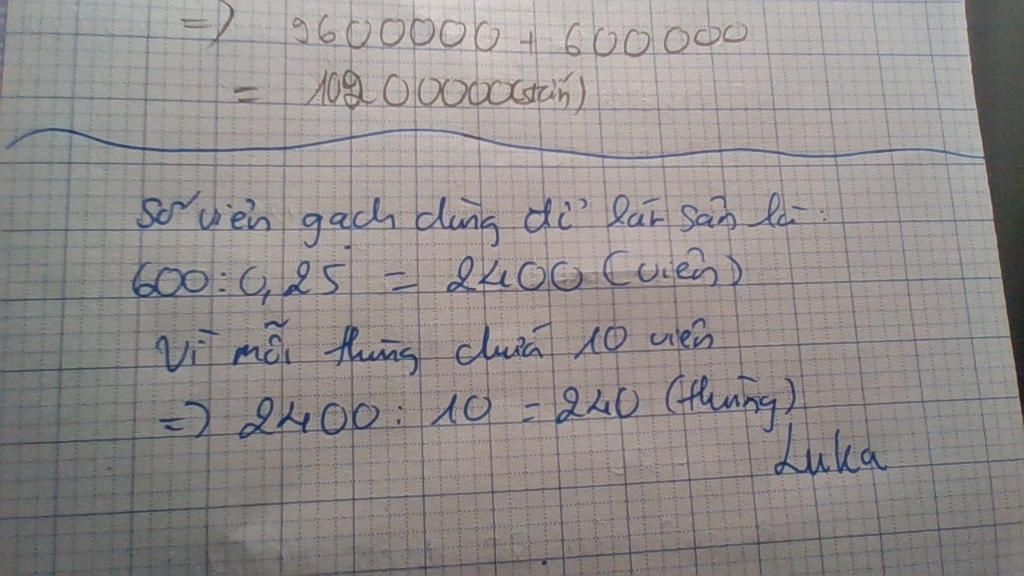 => 9600000 + 600 000
= 10200000(
Số viên gạch dùng để lát sân là:
600 : 0,25 = 2400 (viên)
Vì mỗi thùng chứa 10 viên
=> 2400 : 10 = 240 (thùng)
Luka